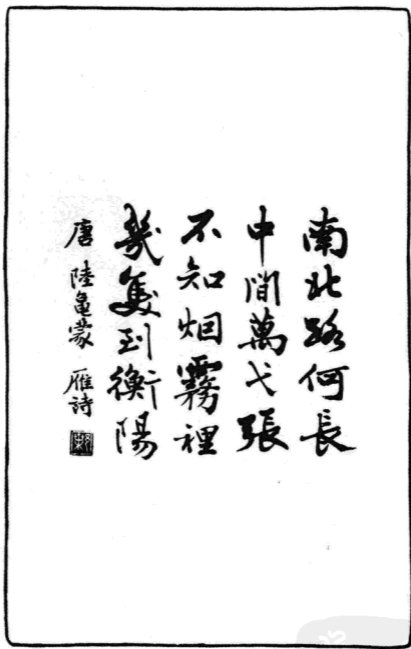 南北路何長
中間萬弋張
不知烟霧裡
幾隻到衡陽
唐 陸龜蒙 雁詩